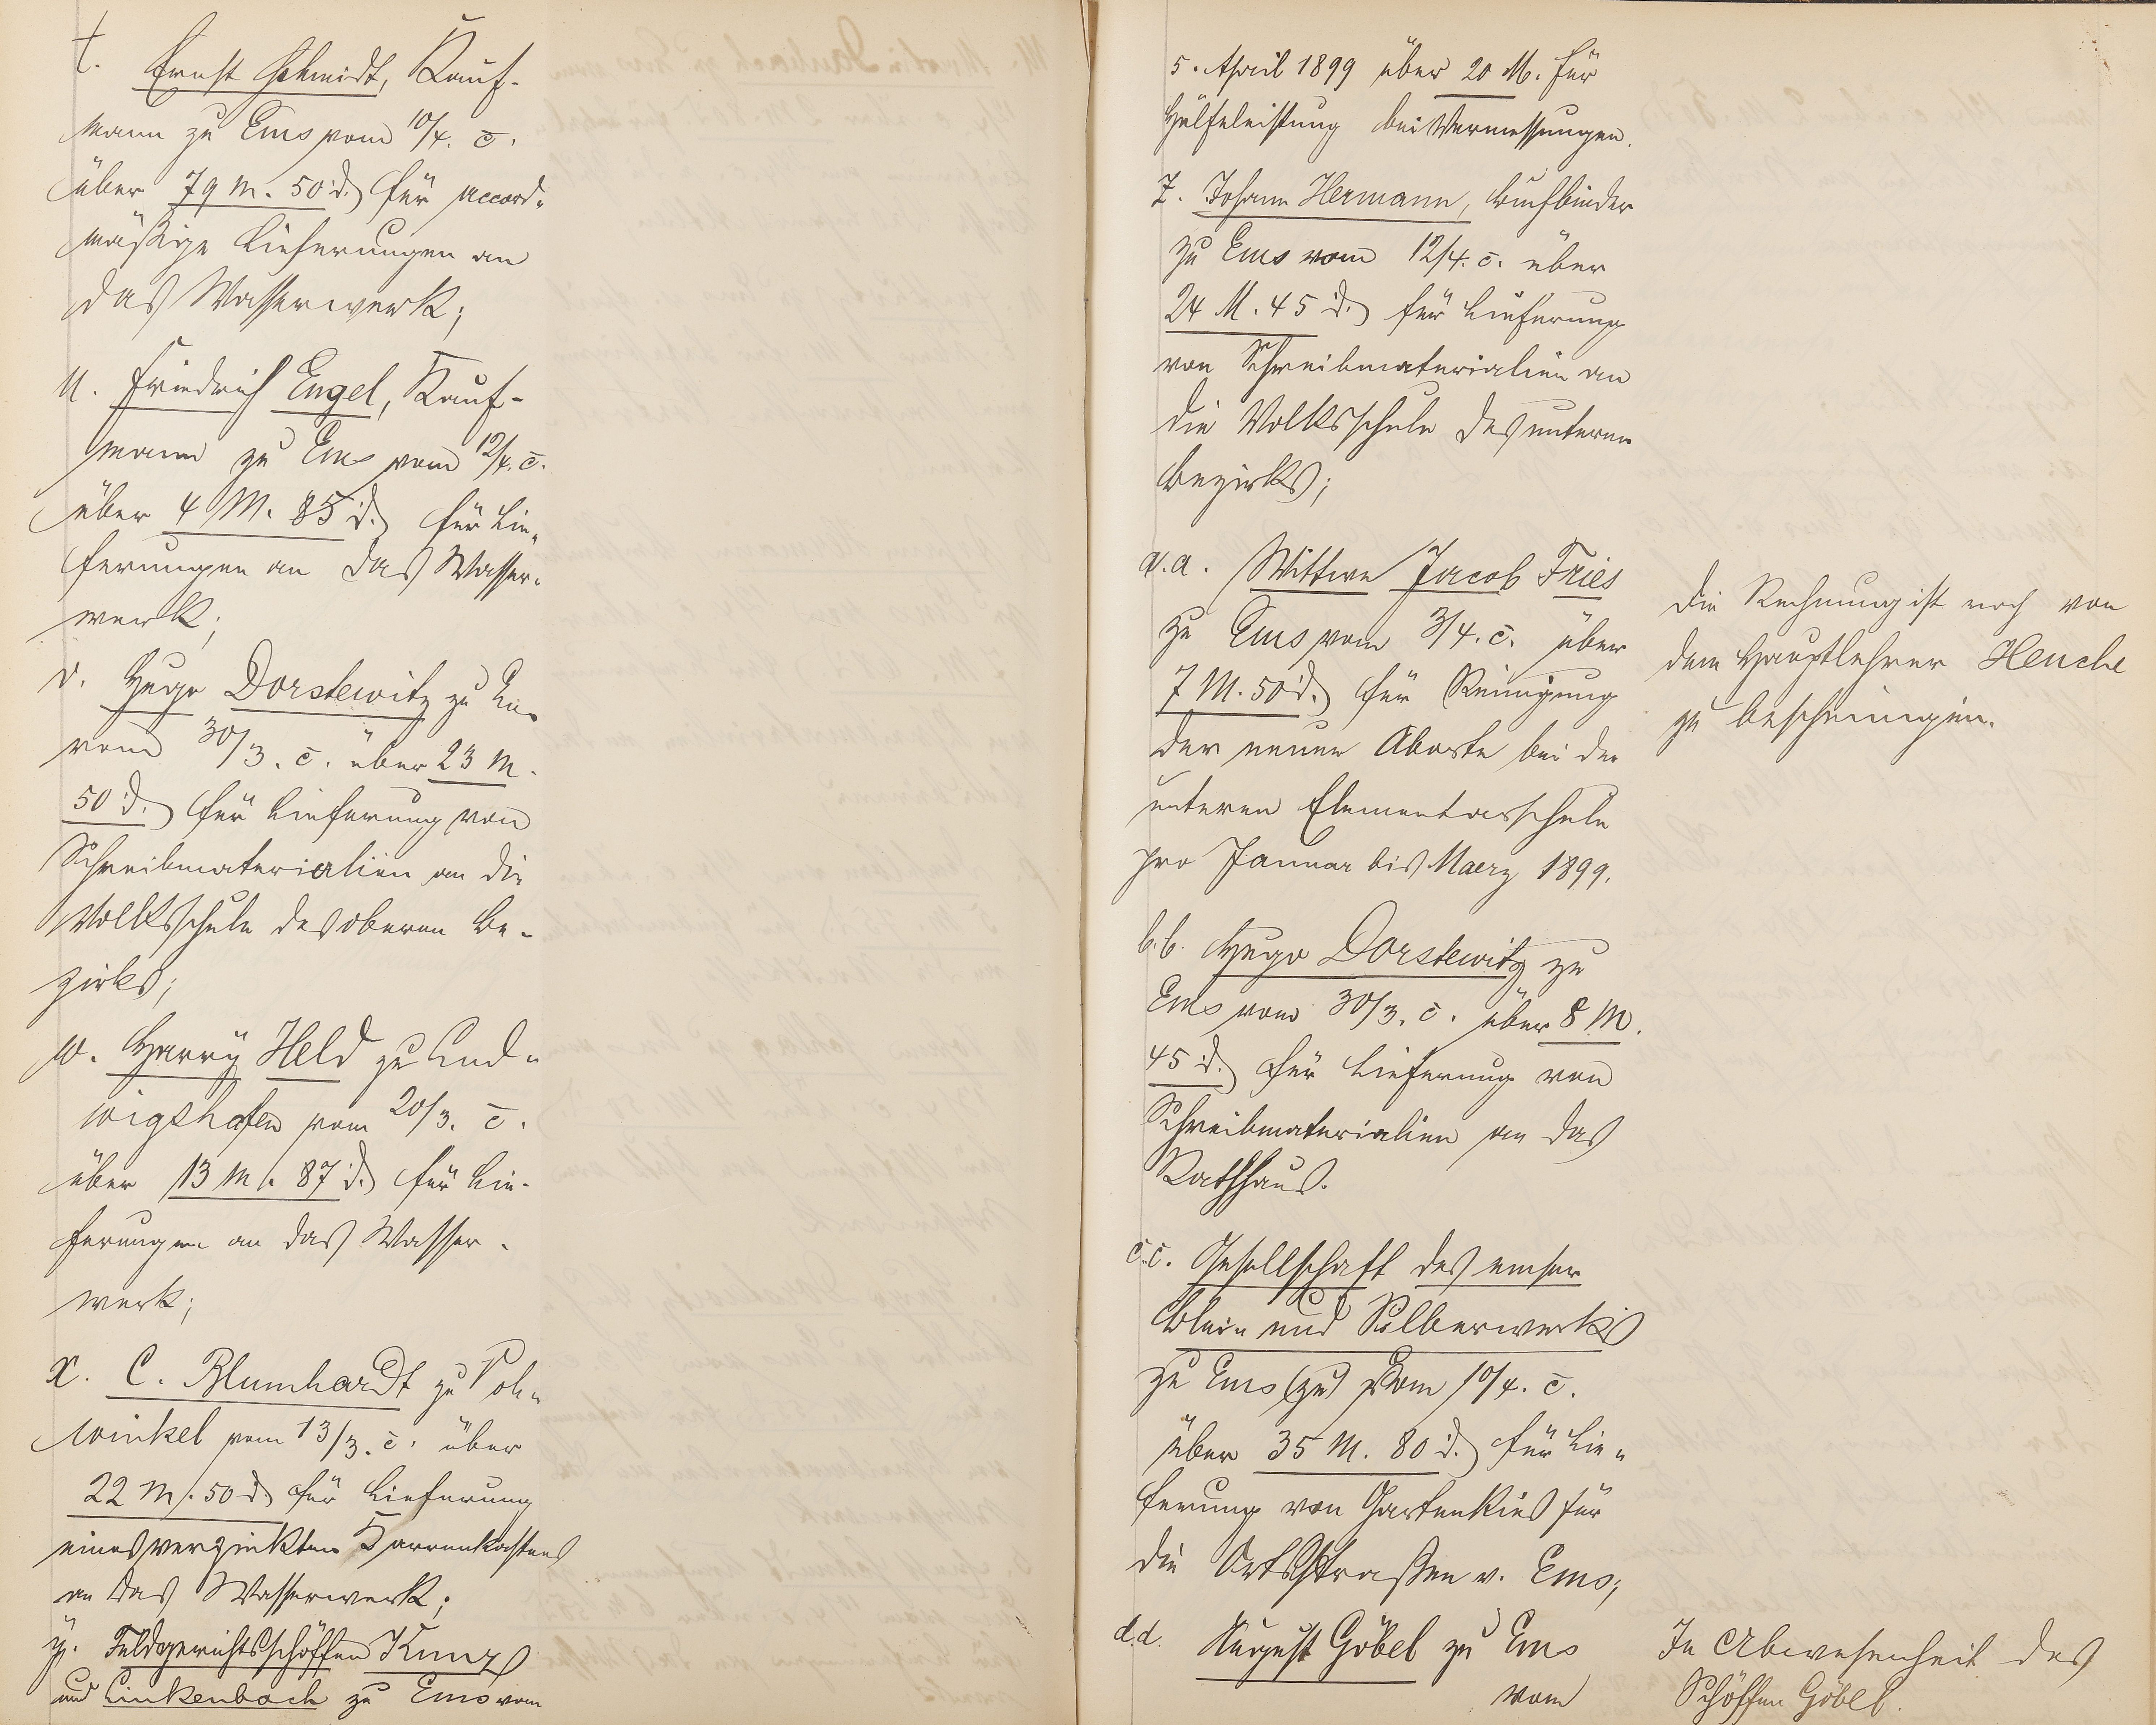 t. Ernst Schmidt, Kauf-
mann zu Ems vom 10/4. c̄.
über 79 M. 50 d. für accord-
mäßige Lieferungen an
das Wasserwerk;
u. Friedrich Engel, Kauf-
mann zu Ems vom 12/4. c̄.
über 4 M. 85 d. für Lie-
ferungen an das Wasser-
werk;
v. Hugo Dorstewitz zu Ems
vom 30/3. c̄. über 23 M.
50 d. für Lieferung von
Schreibmaterialien an die
Volksschule des oberen Be-
zirks;
w. Harry Held zu Lud-
wigshafen vom 20/3. c̄.
über 13 M. 87 d. für Lie-
ferungen an das Wasser-
werk;
x. C. Blumhardt zu Voh-
winkel vom 13/3. c̄. über
22 M. 50 d. für Lieferung
eines verzinkten Karrenkastens
an das Wasserwerk;
y. Feldgerichtsschöffen Kunz
und Linkenbach zu Ems vom
5. April 1899 über 20 M. für
Hülfeleistung bei Vermessungen.
z. Johann Hermann, Buchbinder
zu Ems vom 12/4. c̄. über
24 M. 45 d. für Lieferung
von Schreibmaterialien an
die Volksschule des unteren
Bezirks;
a.a. Wittwe Jacob Fries
zu Ems vom 3/4. c̄. über
7 M. 50 d. für Reinigung
der neuen Aborte bei der
unteren Elementarschule
pro Januar bis Maerz 1899.
Die Rechnung ist noch von
dem Hauptlehrer Henche
zu bescheinigen.
b.b. Hugo Dorstewitz zu
Ems vom 30/3. c̄. über 8 M.
45 d. für Lieferung von
Schreibmaterialien an das
Rathhaus.
c.c. Gesellschaft des emser
Blei- und Silberwerks
zu Ems (zu) vom 10/4. c̄.
über 35 M. 80 d. für Lie-
ferung von Gartenkies für
die Ortsstraßen v. Ems;
d.d. August Göbel zu Ems
vom
In Abwesenheit des
Schöffen Göbel.